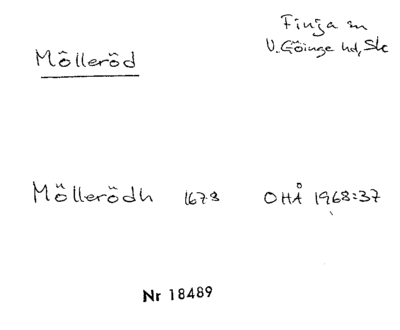 Finja sn
Mölleröd
V. Göinge hd, Sk
Möllerödh 1673 OHÅ 1968:37
Nr 18489